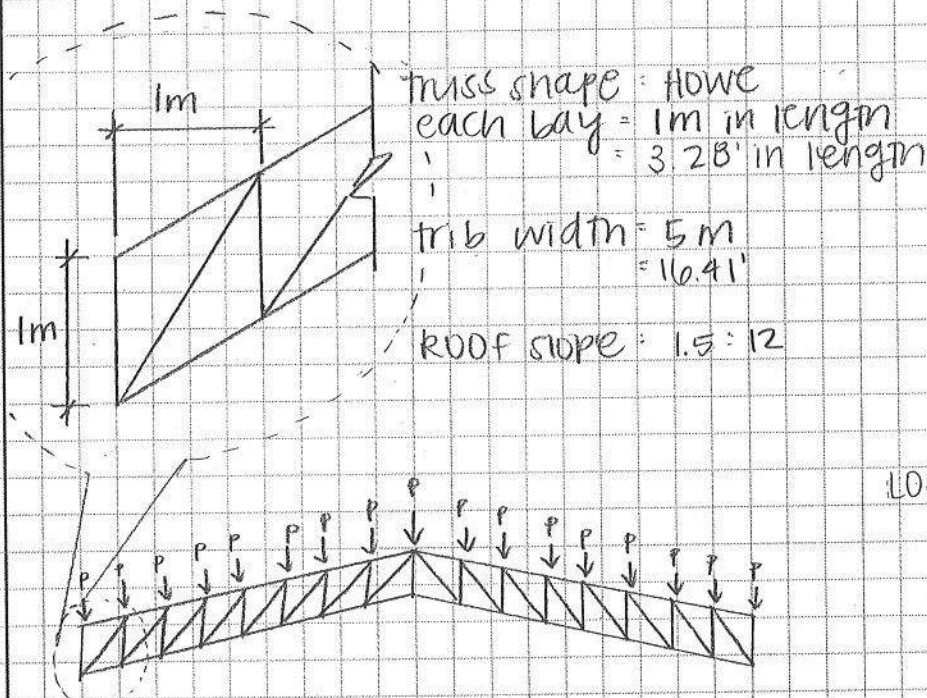 1m
truss shape : HOWE
each bay = 1m in length
= 3.28' in length
trib width = 5 m
= 16.41'
1m
ROOF slope : 1.5 : 12
LO
P P P P P P P P P P P P P P P P P